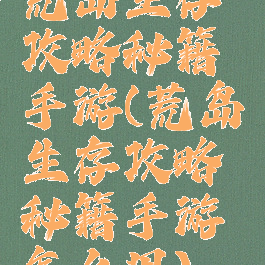 荒岛生存
攻略秘籍
手游(荒岛
生存攻略
秘籍手游